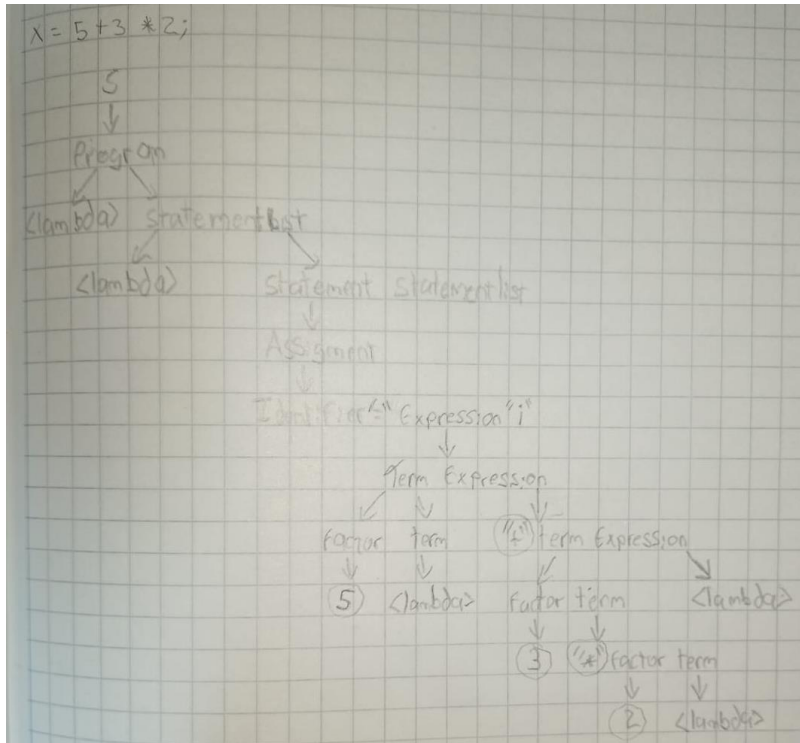 x = 5 + 3 * 2;
S
Program
<lambda> StatementList
<lambda> Statement Statementlist
Assigment
Identifier "=" Expression ";"
Term Expression
Factor term "+" term Expression
5 <lambda> Factor term <lambda>
3 "*" factor term
2 <lambda>